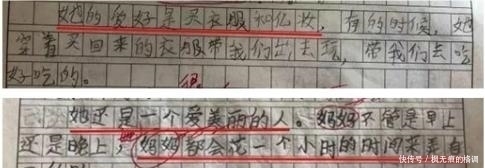 她的爱好是买衣服和化妆，有的时候，她
穿着买回来的衣服带我们出去玩，带我们去吃
好吃的。
她还是一个爱美丽的人。妈妈不管是早上
还是晚上，妈妈都会花一个小时的时间来美自
快传号/枫无痕的格调